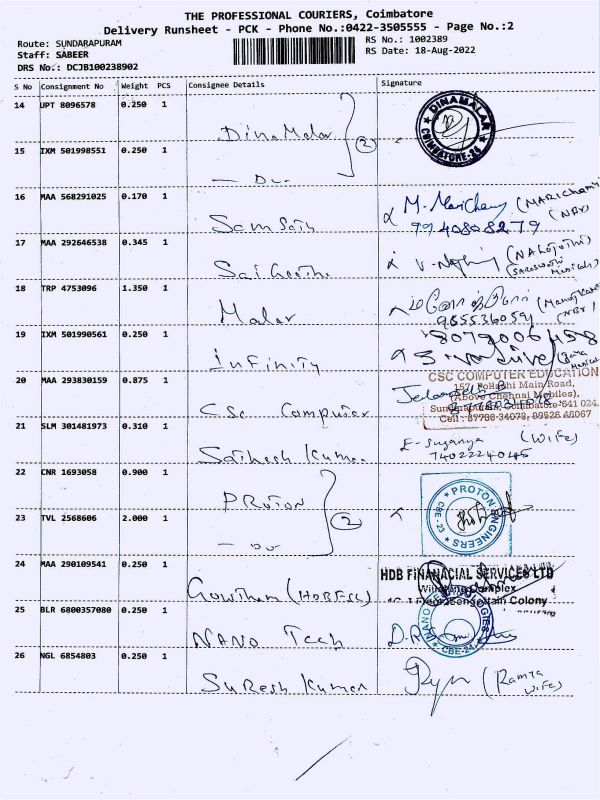 THE PROFESSIONAL COURIERS, Coimbatore
Delivery Runsheet - PCK - Phone No.:0422-3505555 - Page No.:2
Route: SUNDARAPURAM
RS No.: 1002389
Staff: SABEER
RS Date: 18-Aug-2022
DRS No.: DCJB100238902
S No Consignment No Weight PCS Consignee Details Signature
14 UPT 8096578 0.250 1
Dina Malar (2)
DINAMALAR
COIMBATORE-24
15 IXM 501998551 0.250 1
— Do -
16 MAA 568291025 0.170 1
M. Marichamy (MARICHAMY)
(NBr)
9940808279
17 MAA 292646538 0.345 1
18 TRP 4753096 1.350 1
Malar
19 IXM 501990561 0.250 1
Infinity
20 MAA 293830159 0.875 1
Csc Computer
CSC COMPUTER EDUCATION
157, Pollachi Main Road,
(Above Chennai Mobiles),
Sundarapuram, Coimbatore-641 024.
Cell : 87780 34078, 09526 46067
21 SLM 301481973 0.310 1
Sathesh Kumar
E- Suganya (Wife)
7402224045
22 CNR 1693058 0.900 1
PROTON (2)
PROTON ENGINEERS
CBE-23
23 TVL 2568606 2.000 1
— Do
24 MAA 290109541 0.250 1
Gowtham (HDBFSL)
HDB FINANACIAL SERVICES LTD
Complex
Colony
25 BLR 6800357080 0.250 1
NANO Tech
NANO TECHNOLOGIES
CBE-24
26 NGL 6854803 0.250 1
Suresh Kumar
(Ramya
wife)